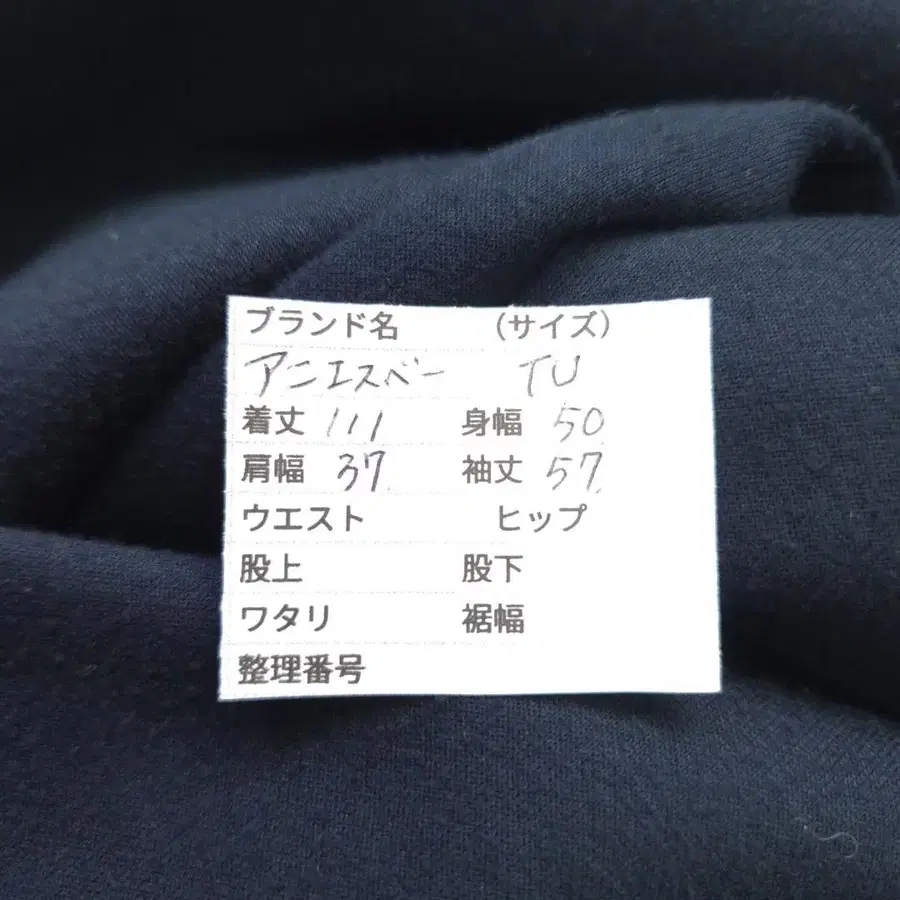 ブランド名 （サイズ）
アニエスベー TU
着丈 111 身幅 50
肩幅 37 袖丈 57
ウエスト ヒップ
股上 股下
ワタリ 裾幅
整理番号